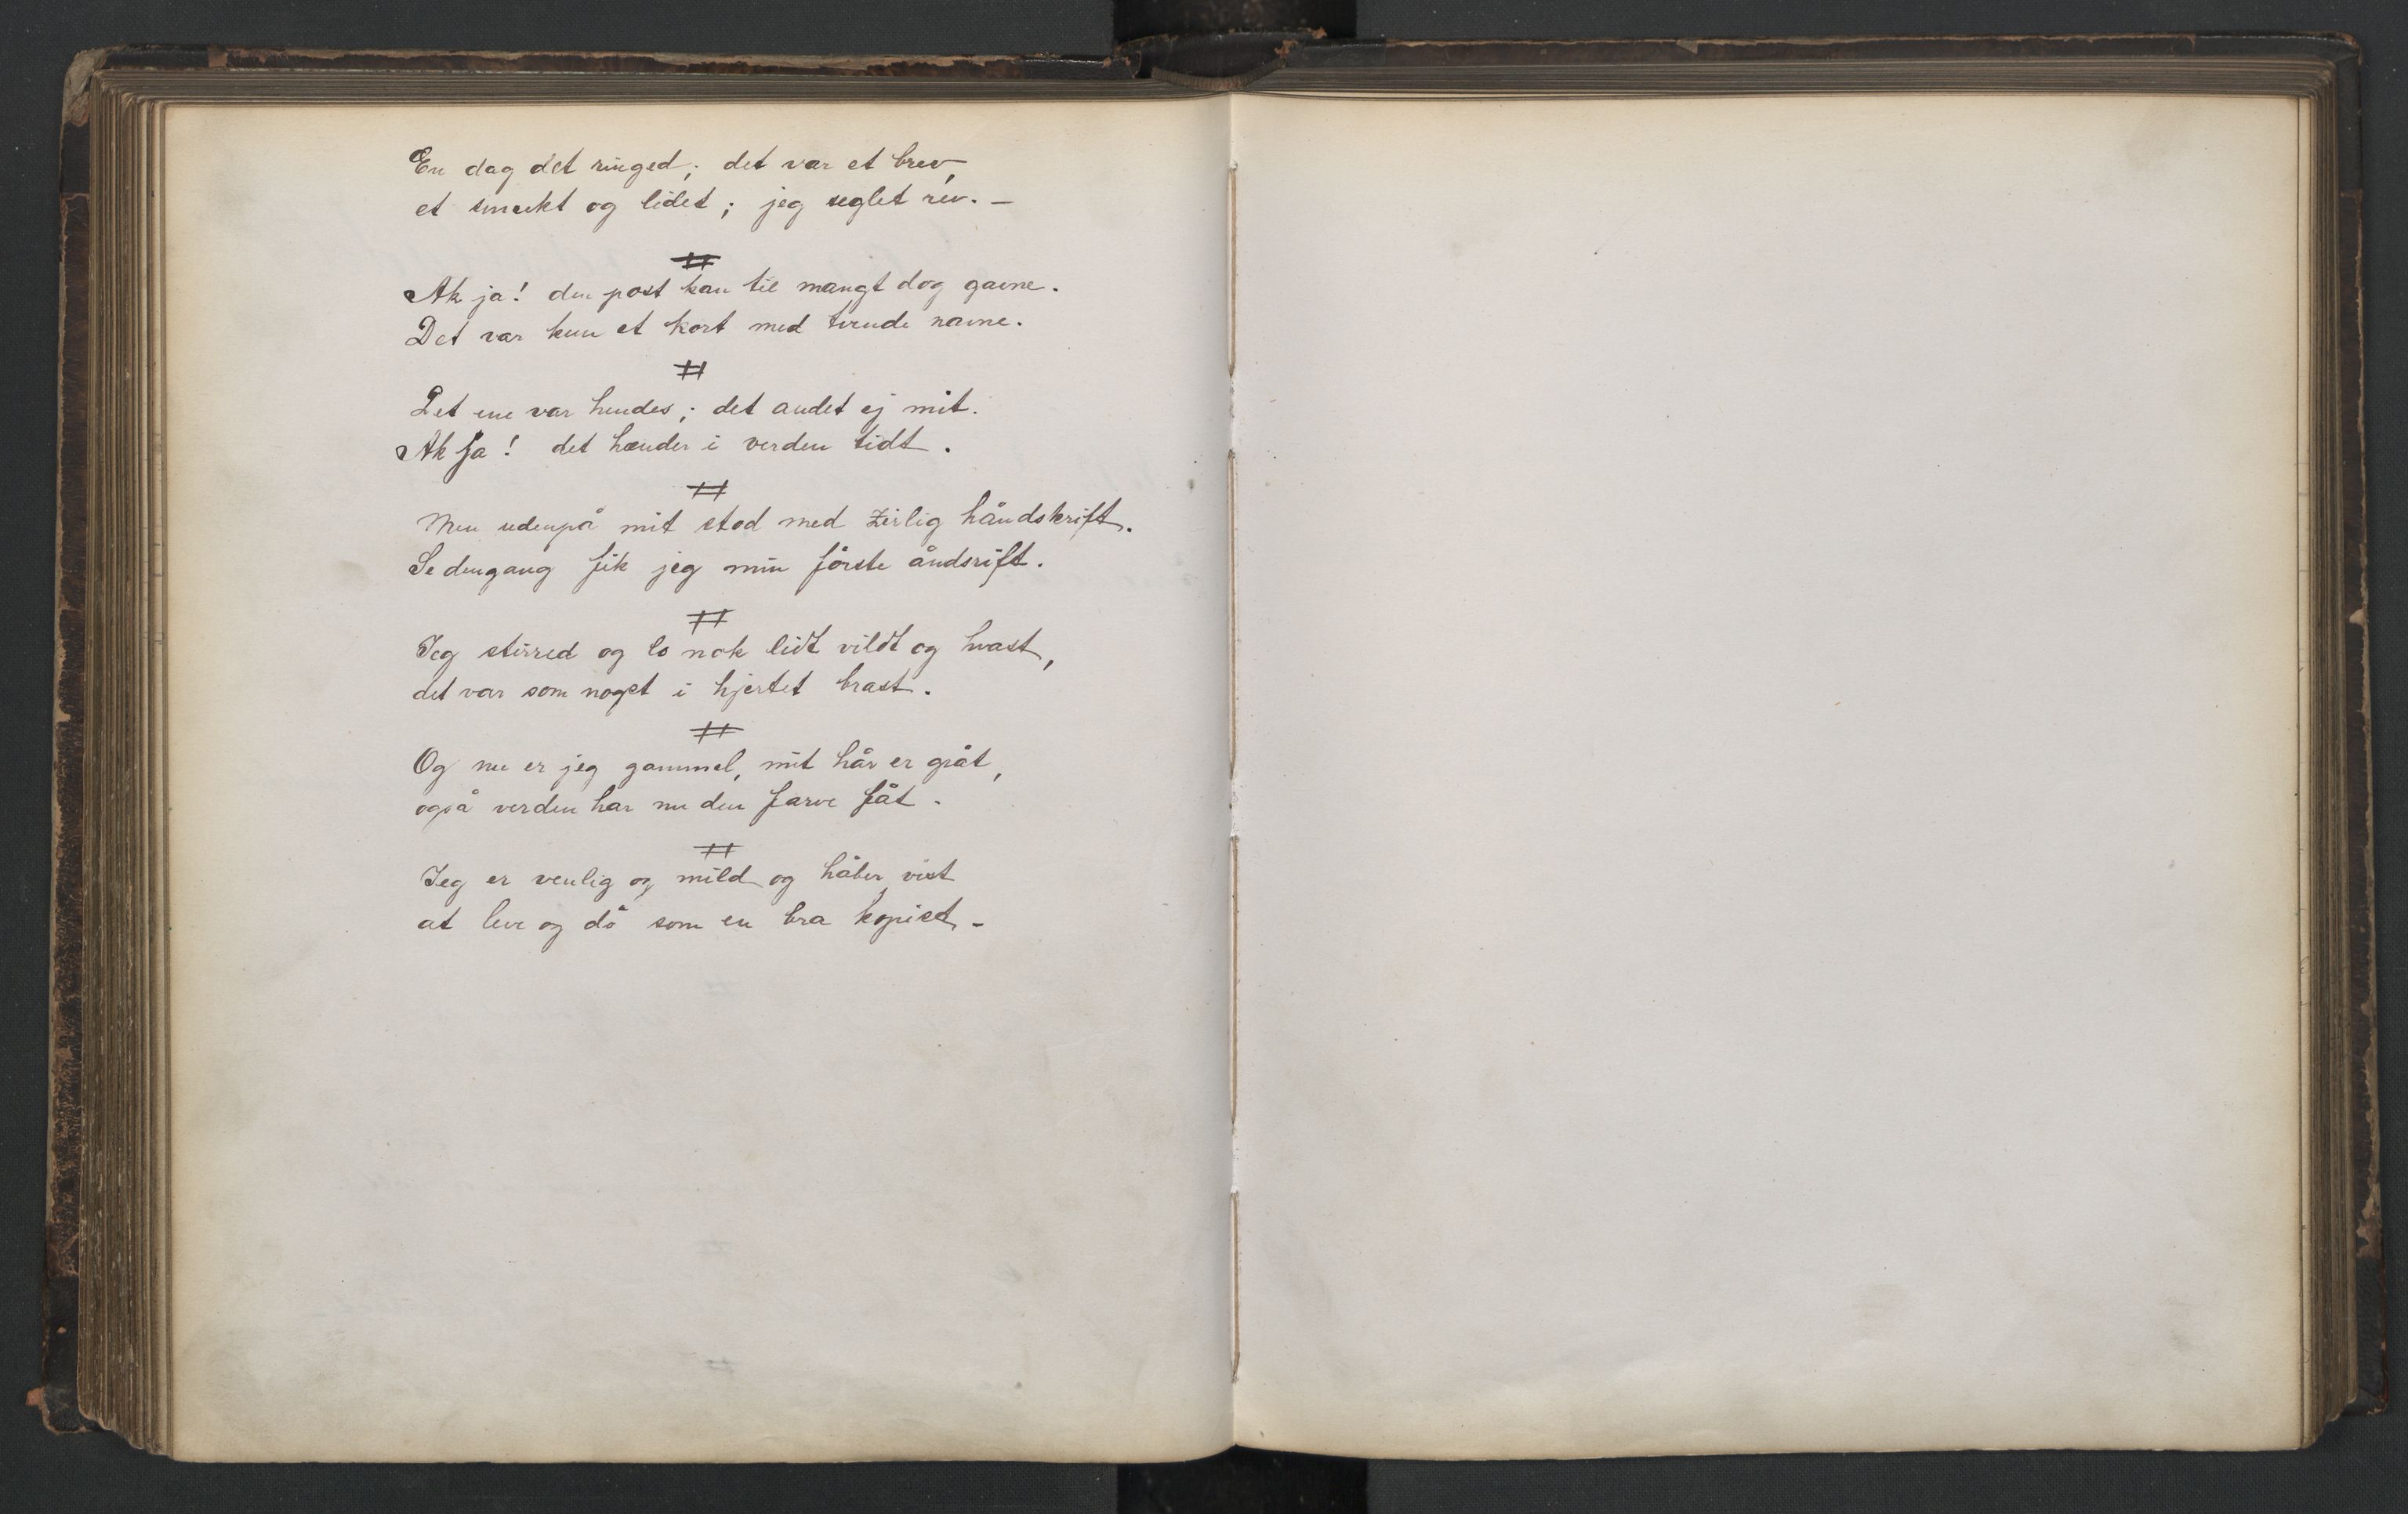 En dag det ringed; det var et brev,
et smukt og lidet; jeg seglet rev. –
#
Ak ja! den post kan til mangt dog gavne.
Det var kun et kort med tvende navne.
#
Det ene var hendes; det andet ej mit.
Ak ja! det hænder i verden tidt.
#
Men udenpå mit stod med zirlig håndskrift.
Se dengang fik jeg min förste åndsrift.
#
Jeg stirred og lo nok lidt vildt og hvast,
det var som noget i hjertet brast.
#
Og nu er jeg gammel, mit hår er gråt,
også verden har nu den farve fåt.
#
Jeg er venlig og mild og håber vist
at leve og dö som en bra kopist –